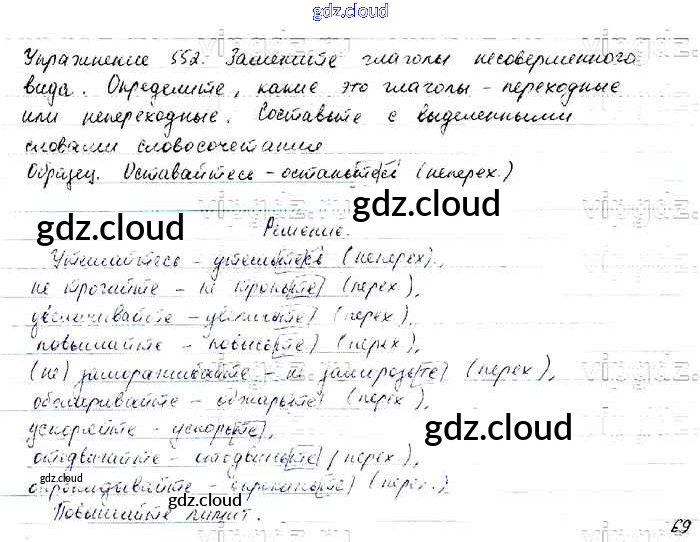 gdz.cloud
Упражнение 552. Замените глаголы несовершенного
вида. Определите, какие это глаголы - переходные
или непереходные. Составьте с выделенными
словами словосочетания
Образец. Оставайтесь - останьтесь (неперех.)
gdz.cloud
gdz.cloud
Решение.
(неперех).,
не трогайте - не троньте (перех.),
увеличивайте - увеличьте (перех.),
повышайте - повысьте (перех.),
(не) замораживайте - не заморозьте (перех.),
обжаривайте - обжарьте (перех.),
ускоряйте - ускорьте,
gdz.cloud
отодвигайте - отодвиньте (перех.),
опрокидывайте - опрокиньте (перех.)
gdz.cloud
gdz.cloud
Повышайте лимит.
69